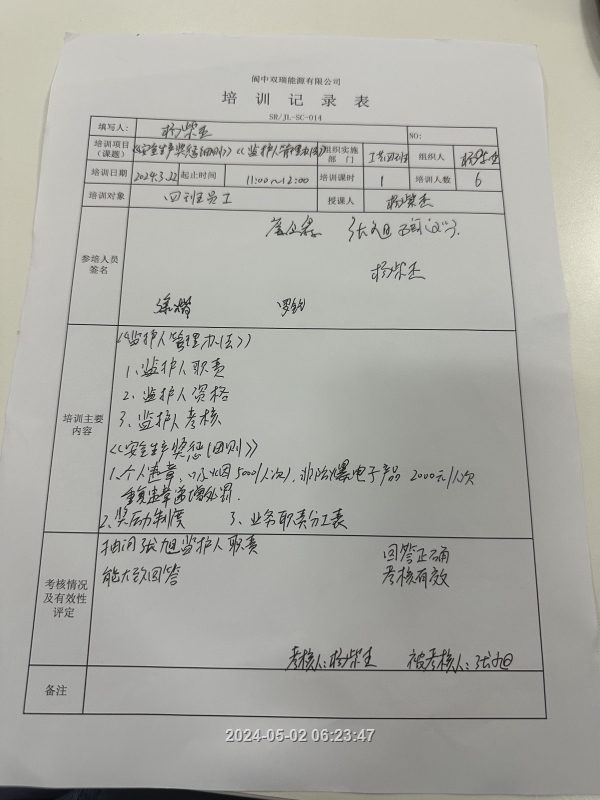 阆中双瑞能源有限公司
培训记录表
SR/JL-SC-014
填写人: 杨柴杰 NO:
培训项目(课题) 《安全生产奖惩细则》《监护人管理办法》 组织实施部门 工艺四班 组织人 杨柴杰
培训日期 2024.3.22 起止时间 11:00~12:00 培训课时 1 培训人数 6
培训对象 四班员工 授课人 杨柴杰
参培人员签名
张旭
杨柴杰
罗
培训主要内容
《监护人管理办法》
1、监护人职责
2、监护人资格
3、监护人考核
《安全生产奖惩细则》
1、个人违章, 5000/人次), 非防爆电子产品 2000元/人次
重复违章递增处罚.
2、奖励制度 3、业务职责分工表
考核情况及有效性评定
抽问张旭监护人职责 回答正确
能大致回答 考核有效
考核人: 杨柴杰 被考核人: 张旭
备注
2024-05-02 06:23:47